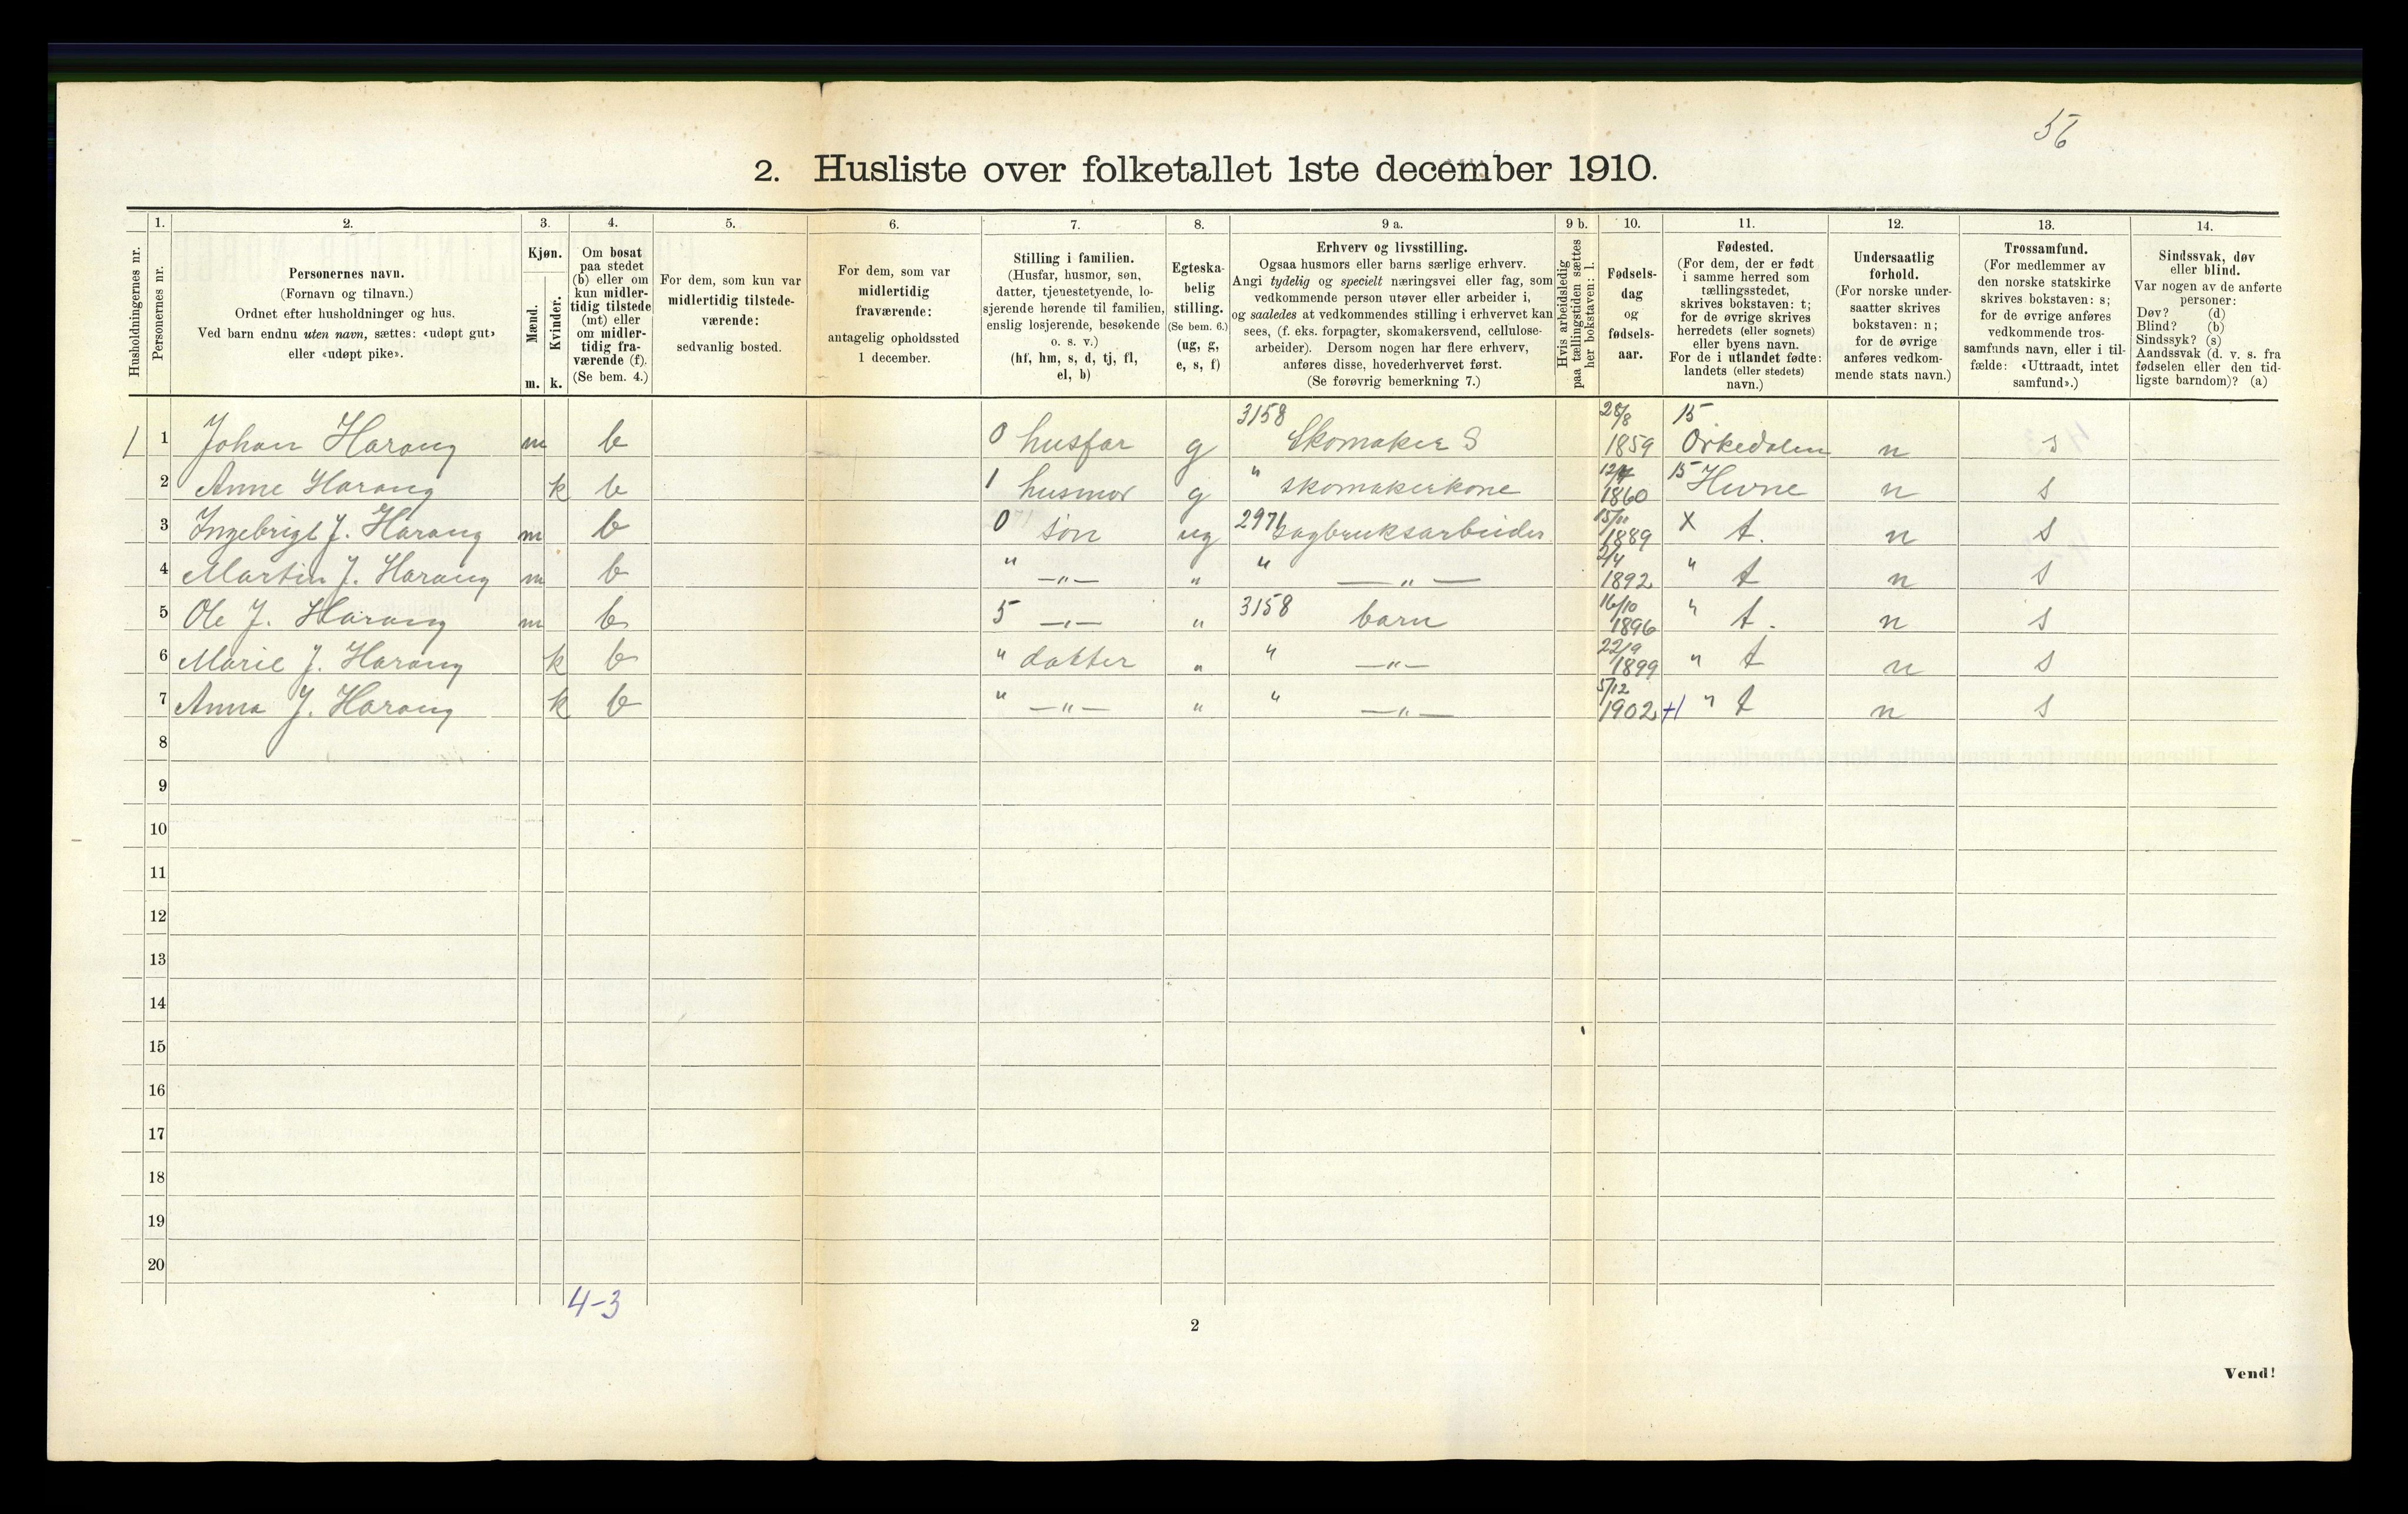 56
2. Husliste over folketallet 1ste december 1910.
Husholdningernes nr.
1.
Personernes nr.
2.
Personernes navn.
(Fornavn og tilnavn.)
Ordnet efter husholdninger og hus.
Ved barn endnu uten navn, sættes: «udøpt gut»
eller «udøpt pike».
3.
Kjøn.
Mænd.
m.
Kvinder.
k.
4.
Om bosat
paa stedet
(b) eller om
kun midler-
tidig tilstede
(mt) eller
om midler-
tidig fra-
værende (f).
(Se bem. 4.)
5.
For dem, som kun var
midlertidig tilstede-
værende:
sedvanlig bosted.
6.
For dem, som var
midlertidig
fraværende:
antagelig opholdssted
1 december.
7.
Stilling i familien.
(Husfar, husmor, søn,
datter, tjenestetyende, lo-
sjerende hørende til familien,
enslig losjerende, besøkende
o. s. v.)
(hf, hm, s, d, tj, fl,
el, b)
8.
Egteska-
belig
stilling.
(Se bem. 6.)
(ug, g,
e, s, f)
9 a.
Erhverv og livsstilling.
Ogsaa husmors eller barns særlige erhverv.
Angi tydelig og specielt næringsvei eller fag, som
vedkommende person utøver eller arbeider i,
og saaledes at vedkommendes stilling i erhvervet kan
sees, (f. eks. forpagter, skomakersvend, cellulose-
arbeider). Dersom nogen har flere erhverv,
anføres disse, hovederhvervet først.
(Se forøvrig bemerkning 7.)
9 b.
Hvis arbeidsledig
paa tællingstiden sættes
her bokstaven: l.
10.
Fødsels-
dag
og
fødsels-
aar.
11.
Fødested.
(For dem, der er født
i samme herred som
tællingsstedet,
skrives bokstaven: t;
for de øvrige skrives
herredets (eller sognets)
eller byens navn.
For de i utlandet fødte:
landets (eller stedets)
navn.)
12.
Undersaatlig
forhold.
(For norske under-
saatter skrives
bokstaven: n;
for de øvrige
anføres vedkom-
mende stats navn.)
13.
Trossamfund.
(For medlemmer av
den norske statskirke
skrives bokstaven: s;
for de øvrige anføres
vedkommende tros-
samfunds navn, eller i til-
fælde: «Uttraadt, intet
samfund».)
14.
Sindssvak, døv
eller blind.
Var nogen av de anførte
personer:
Døv? (d)
Blind? (b)
Sindssyk? (s)
Aandssvak (d. v. s. fra
fødselen eller den tid-
ligste barndom)? (a)
1 1 Johan Harang m b 0 husfar g 3158 Skomaker S 28/8 1859 15 Orkedalen n s
2 Anne Harang k b 1 husmor g " skomakerkone 1860 15 Hevne n s
3 Ingebrigt J. Harang m b 0 søn ug 2971 sagbruksarbeider 15/11 1889 x t. n s
4 Martin J. Harang m b " —"— " " —"— 2/4 1892 " t n s
5 Ole J. Harang m b 5 —"— " 3158 barn 16/10 1896 " t. n s
6 Marie J. Harang k b " datter " " —"— 22/9 1899 " t n s
7 Anna J. Harang k b " —"— " " —"— 5/12 1902 +1 " t n s
8
9
10
11
12
13
14
15
16
17
18
19
20
4-3
2
Vend!